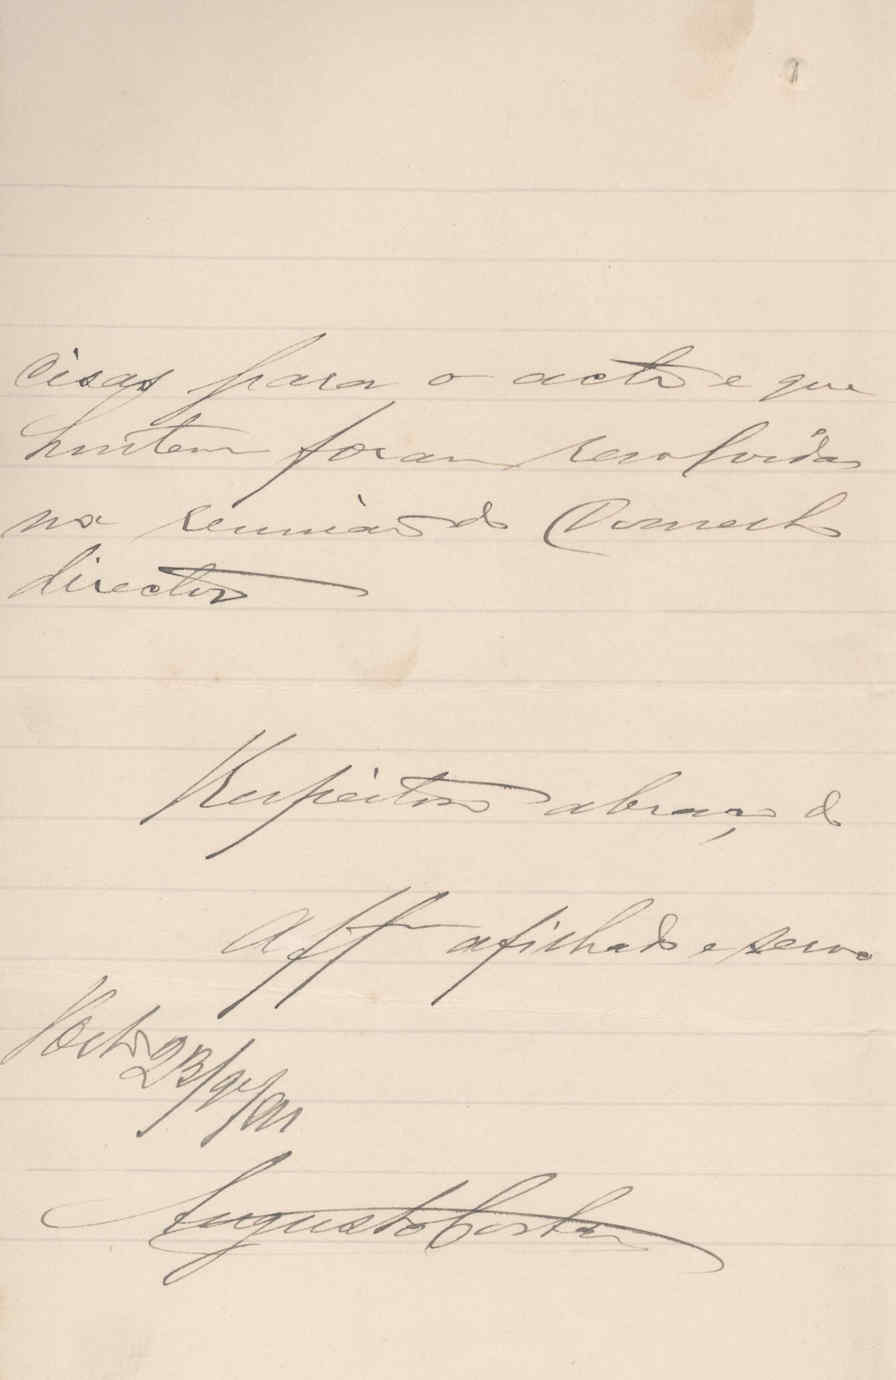 cisas para o acto e que
hontem foram resolvidas
na reunião do Conselho
director
Respeitoso abraço do
Aff.º afilhado e servo
Porto 23/9/91
Augusto Costa